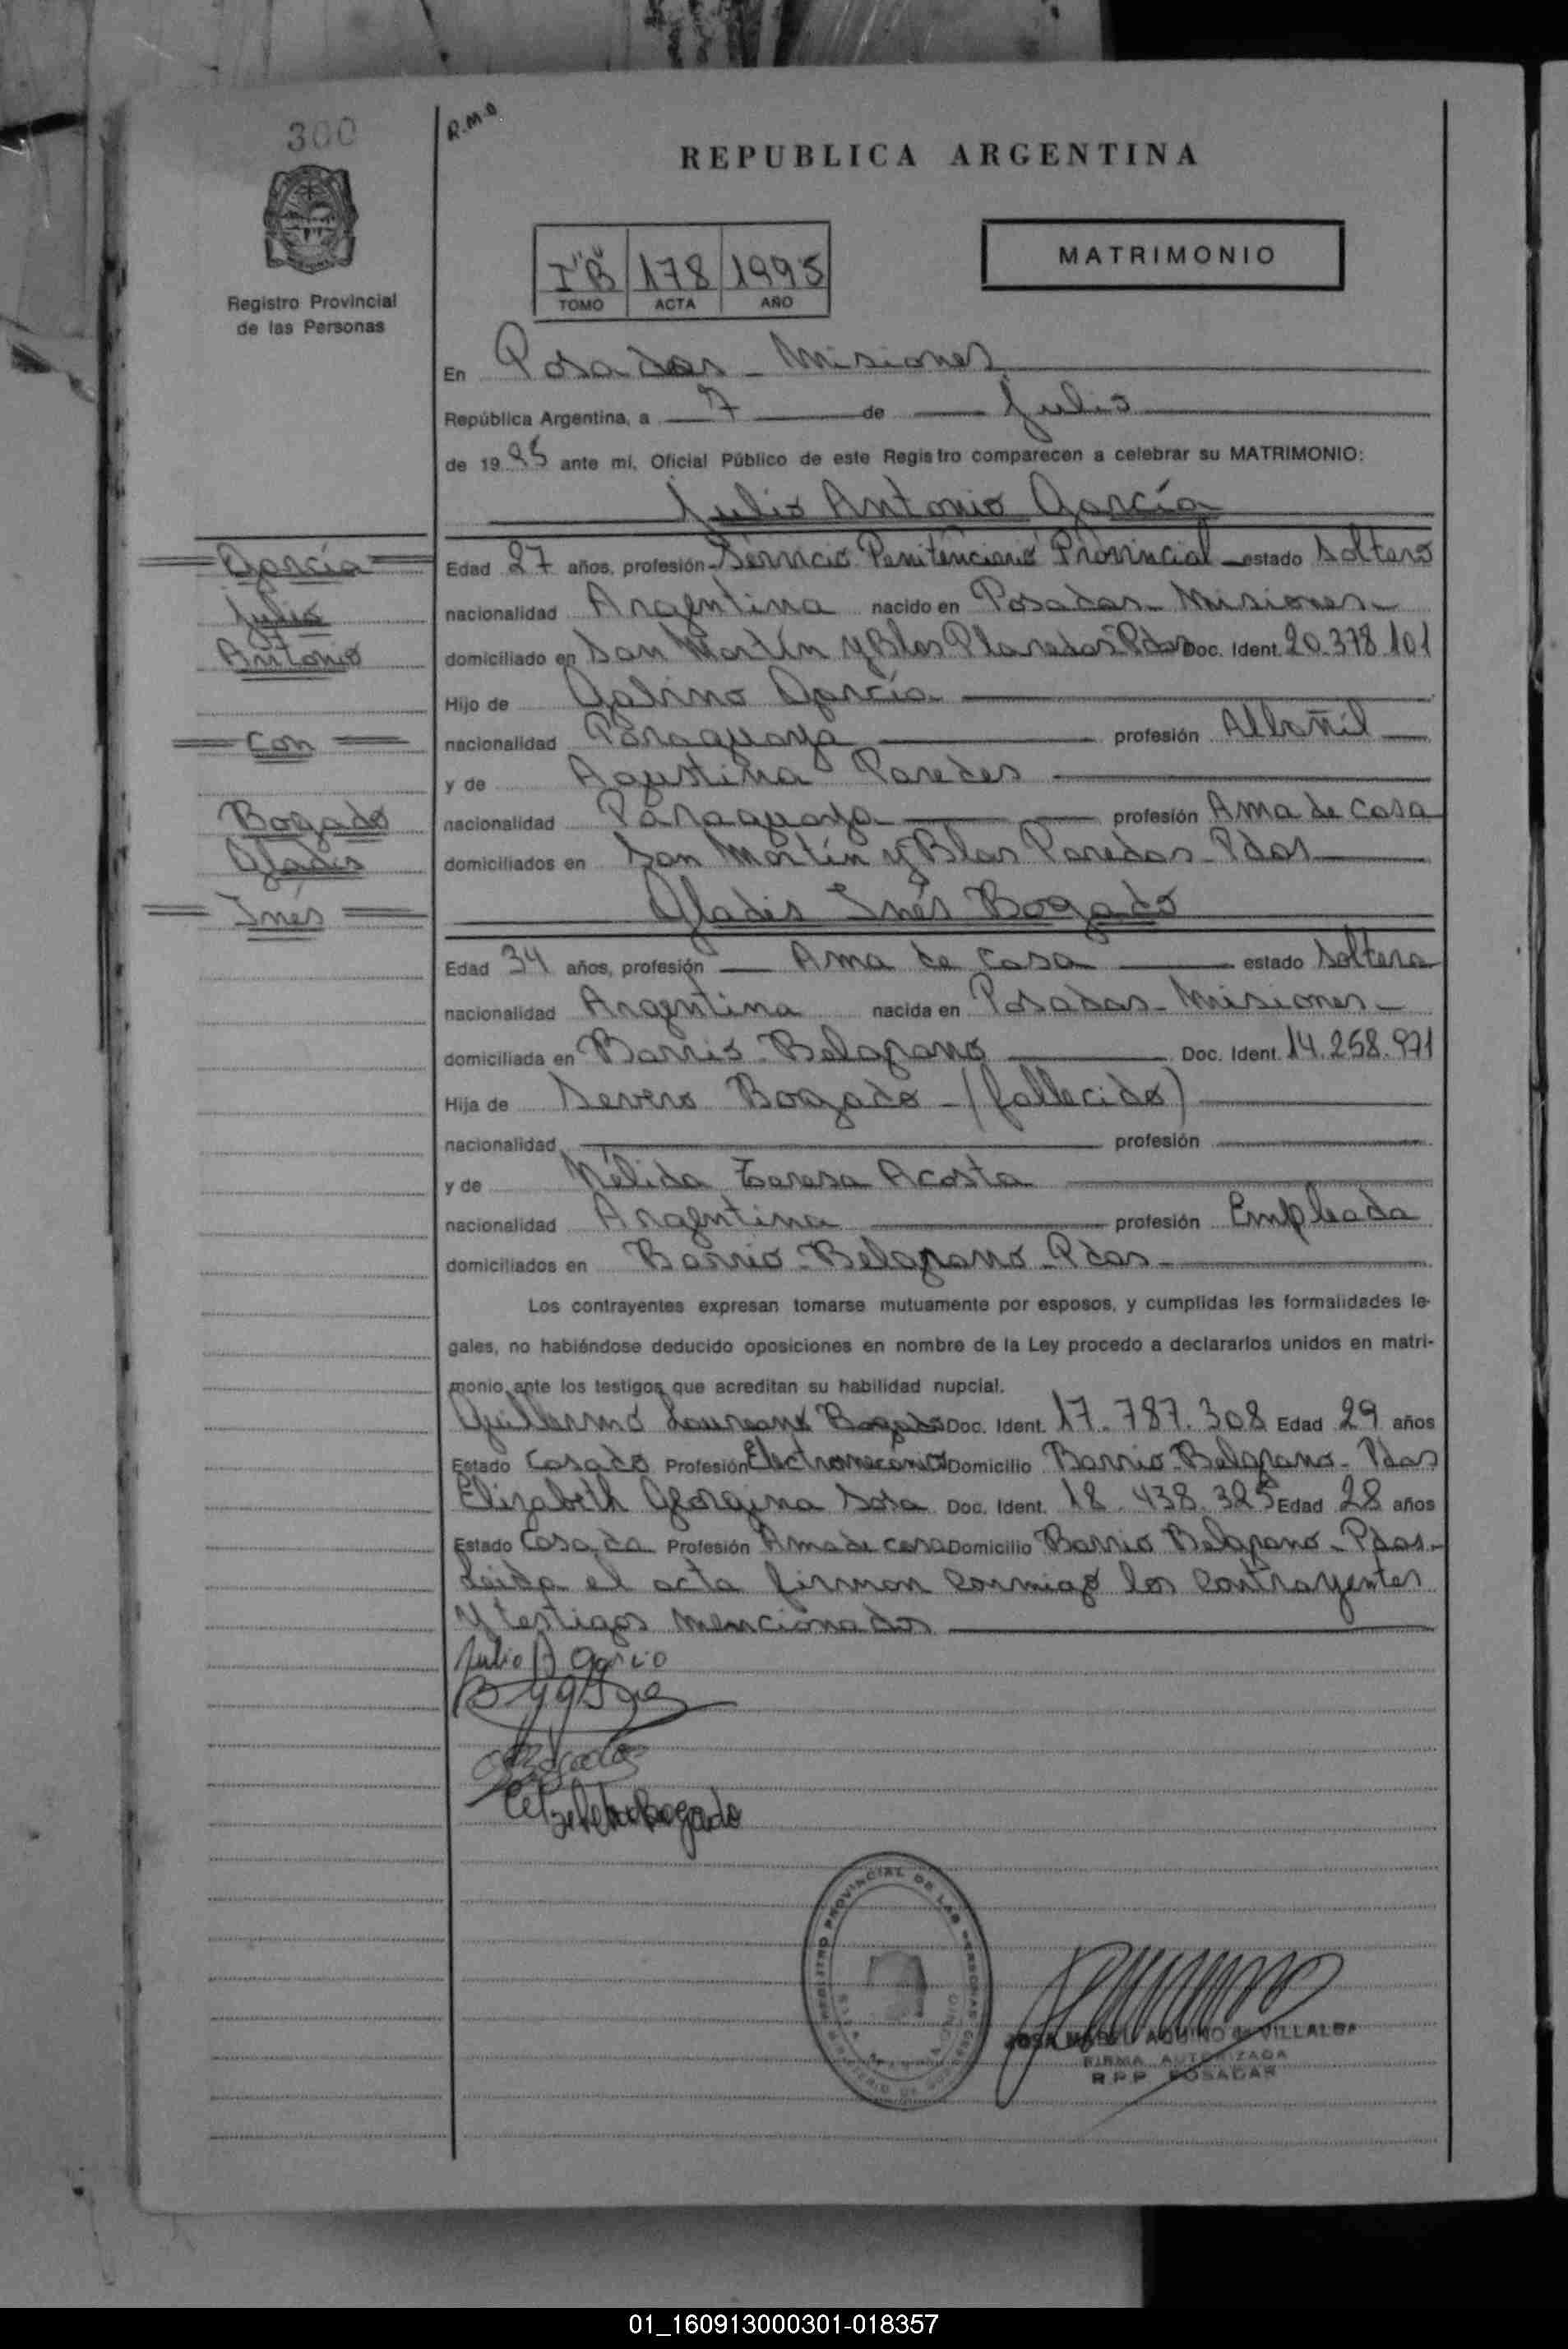 300
R.M.O.
REPUBLICA ARGENTINA
I"B" 178 1995
TOMO ACTA AÑO
MATRIMONIO
Registro Provincial
de las Personas
En Posadas - Misiones
República Argentina, a 7 de Julio
de 1995 ante mi, Oficial Público de este Registro comparecen a celebrar su MATRIMONIO:
Julio Antonio García
García
Julio
Antonio
Con
Bogado
Gladis
Inés
Edad 27 años, profesión Servicio Penitenciario Provincial estado Soltero
nacionalidad Argentina nacido en Posadas - Misiones -
domiciliado en San Martín y Blas Pdas Doc. Ident. 20.378.101
Hijo de Gabino García
nacionalidad Paraguaya profesión Albañil
y de Agustina Paredes
nacionalidad Paraguaya profesión Ama de casa
domiciliados en San Martín y Blas Paredas - Pdas
Gladis Inés Bogado
Edad 34 años, profesión Ama de casa estado Soltera
nacionalidad Argentina nacida en Posadas - Misiones -
domiciliada en Barrio Belgrano Doc. Ident. 14.258.971
Hija de Severo Bogado - (fallecido)
nacionalidad profesión
y de Nélida Teresa Acosta
nacionalidad Argentina profesión Empleada
domiciliados en Barrio - Belgrano - Pdas -
Los contrayentes expresan tomarse mutuamente por esposos, y cumplidas las formalidades le-
gales, no habiéndose deducido oposiciones en nombre de la Ley procedo a declararlos unidos en matri-
monio ante los testigos que acreditan su habilidad nupcial.
Guillermo Laureano Bogado Doc. Ident. 17.787.308 Edad 29 años
Estado Casado Profesión Electromecanico Domicilio Barrio Belgrano - Pdas
Elizabeth Georgina Sosa Doc. Ident. 18.438.325 Edad 28 años
Estado Casada Profesión Ama de casa Domicilio Barrio Belgrano - Pdas -
Leida el acta firman conmigo los contrayentes
y testigos mencionados
Julio A Garcia
REGISTRO PROVINCIAL DE LAS PERSONAS
AQUINO de VILLALBA
FIRMA AUTORIZADA
R.P.P. POSADAS
01_160913000301-018357